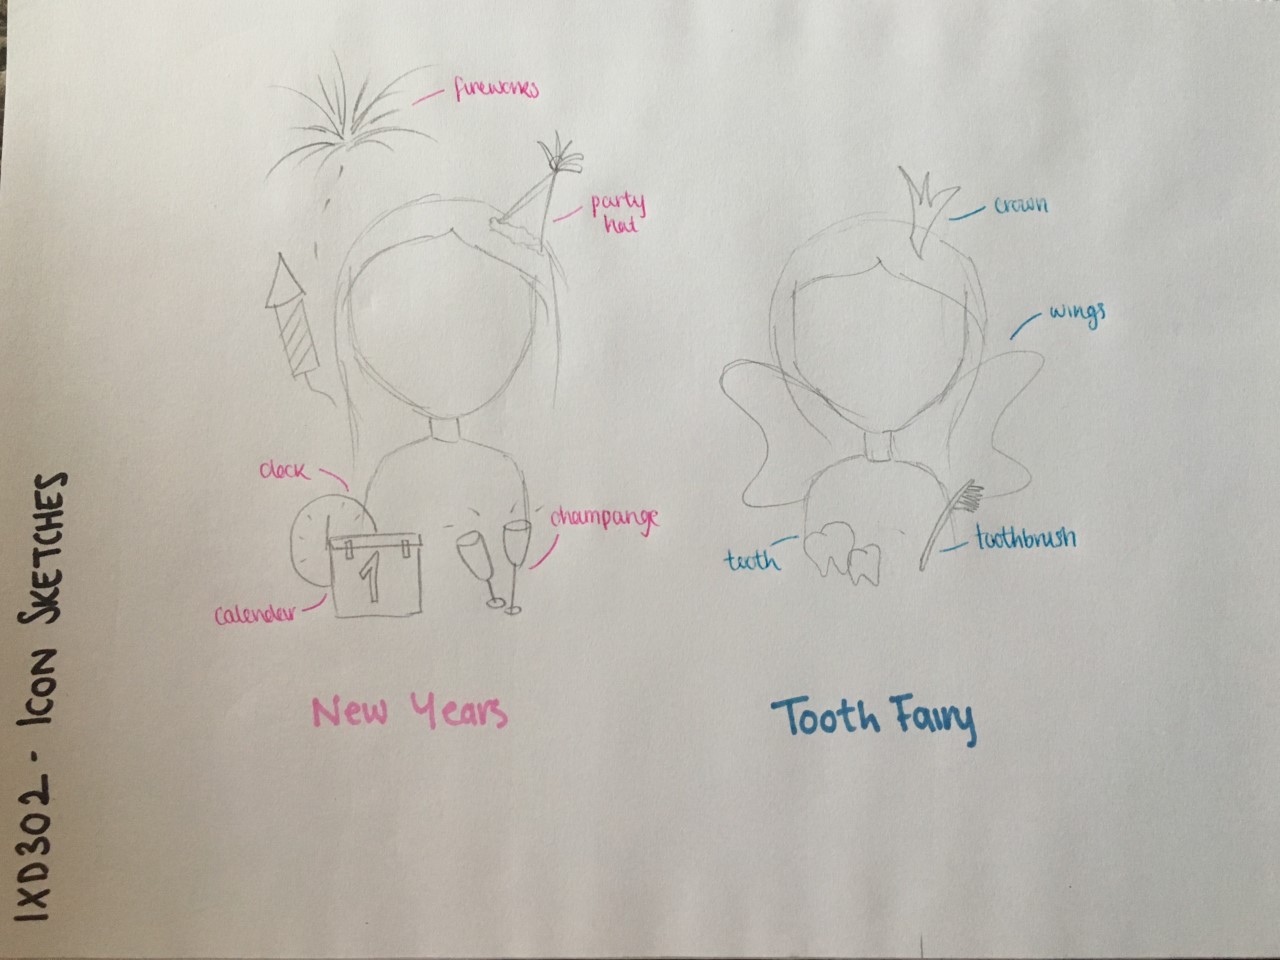 IXD302 - ICON SKETCHES
fireworks
party
hat
clock
champange
calender
1
New Years
crown
wings
tooth
toothbrush
Tooth Fairy